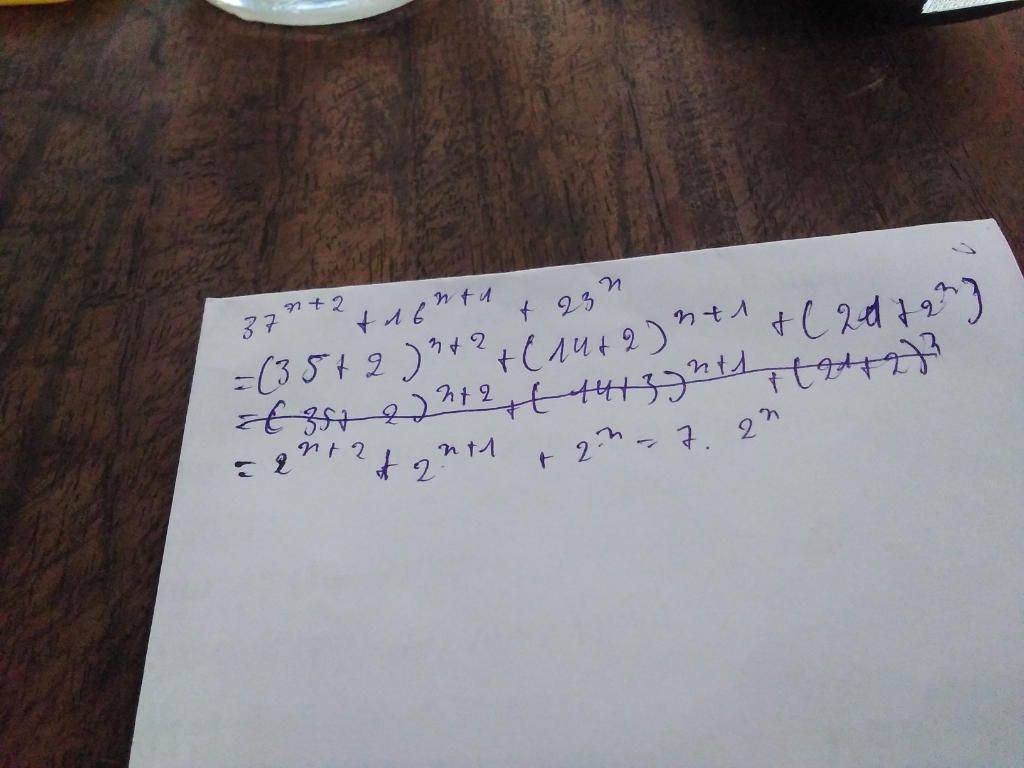 37^{n+2} + 16^{n+1} + 23^{n}
= (35+2)^{n+2} + (14+2)^{n+1} + (21+2^{n})
= (35+2)^{n+2} + (14+3)^{n+1} + (21+2)^{n}
= 2^{n+2} + 2^{n+1} + 2^{n} = 7. 2^{n}